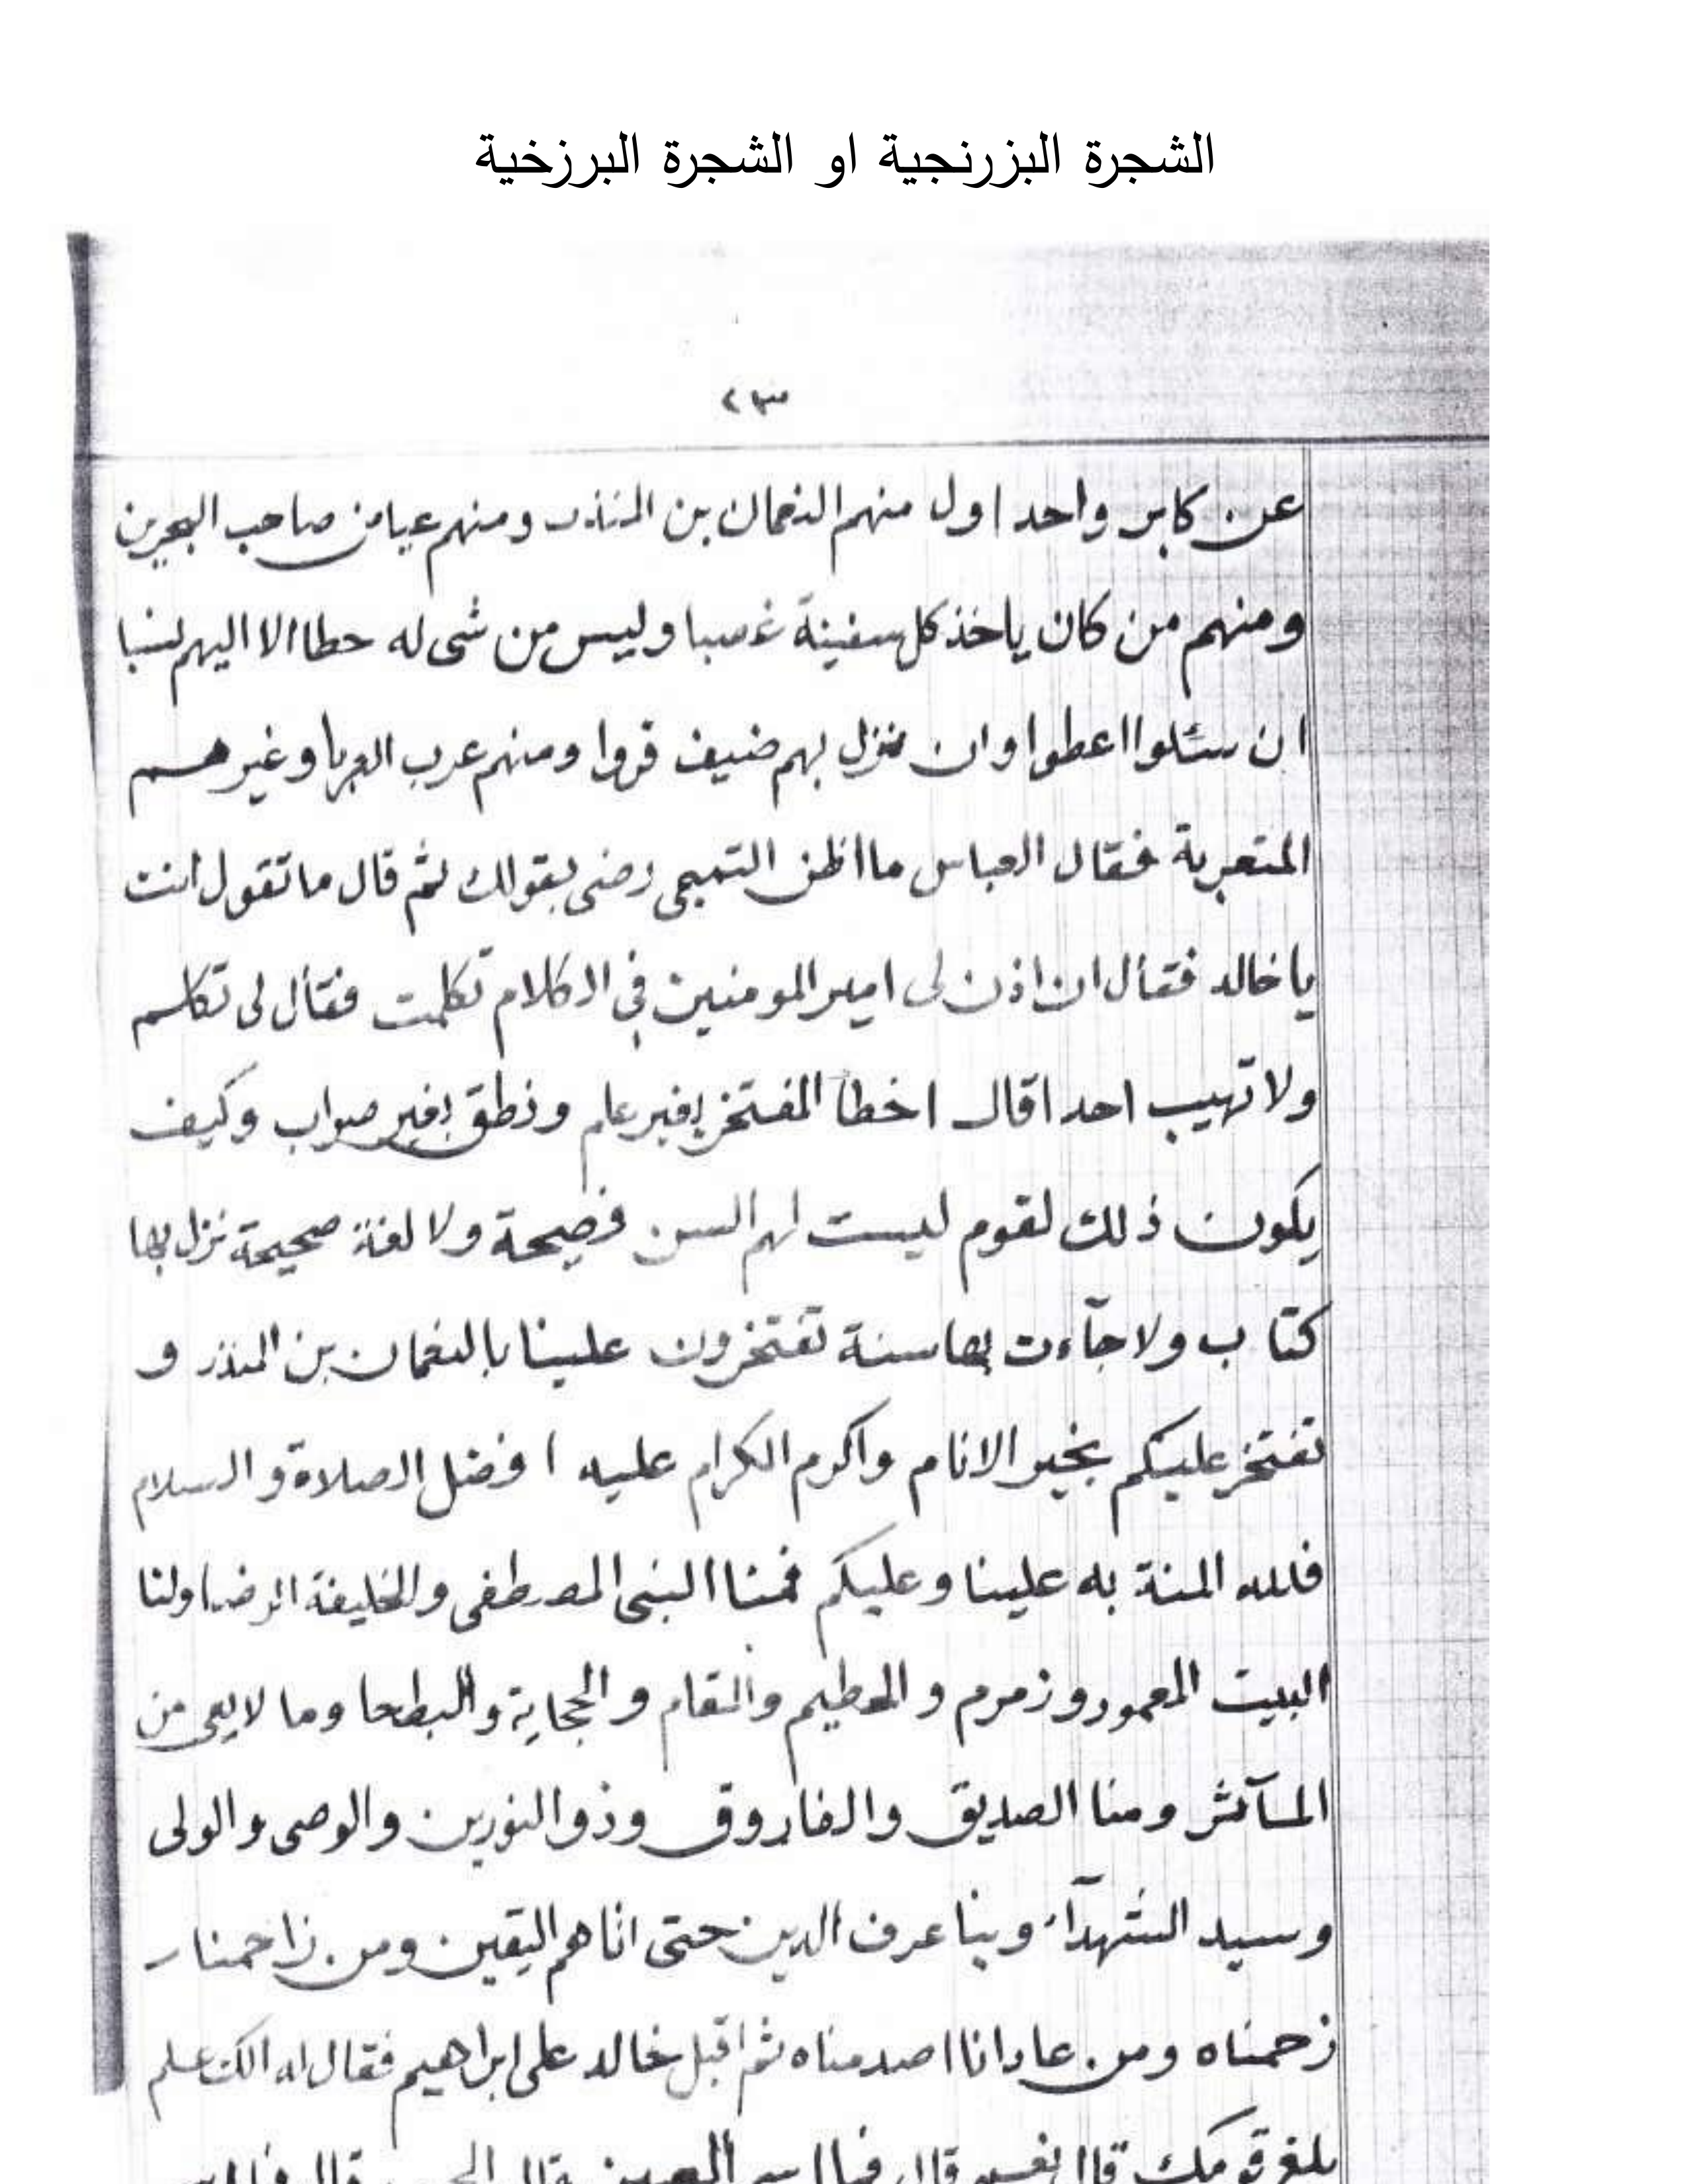 الشجرة البزرنجية او الشجرة البرزخية
٢٣
عن كابر واحد اول منهم النعمان بن المنذر ومنهم عياض صاحب البحرين
ومنهم من كان ياخذ كل سفينة غصبا وليس من شى له حطا الا اليهم لنسبا
ان سئلوا اعطوا وان نزل بهم ضيف قروا ومنهم عرب العربا وغيرهم
المتعربة فقال العباس ما اظن التميمى رضى بقولك ثم قال ما تقول انت
يا خالد فقال ان اذن لى امير المومنين في الكلام تكلمت فقال لى تكلم
ولا تهيب احدا قال اخطأ المفتخر بغير علم ونطق بغير صواب وكيف
يكون ذلك لقوم ليست لهم السن فصيحة ولا لغة صحيحة نزل بها
كتاب ولا جآءت بها سنة تفتخرون علينا بالنعمان بن المنذر و
نفتخر عليكم بخير الانام واكرم الكرام عليه افضل الصلاة والسلام
فلله المنة به علينا وعليكم فمنا النبى المصطفى والخليفة الرضا ولنا
البيت المعمور وزمزم والحطيم والمقام والحجابة والبطحا وما لا يحى من
المآثر ومنا الصديق والفاروق وذو النورين والوصى والولى
وسيد الشهدآء وبنا عرف الدين حتى اتاهم اليقين ومن زاحمنا ر
زحمناه ومن عادانا اصدمناه ثم اقبل خالد على ابراهيم فقال له الك علم
بلغة قومك قال نعم قال فما اسم العين قال